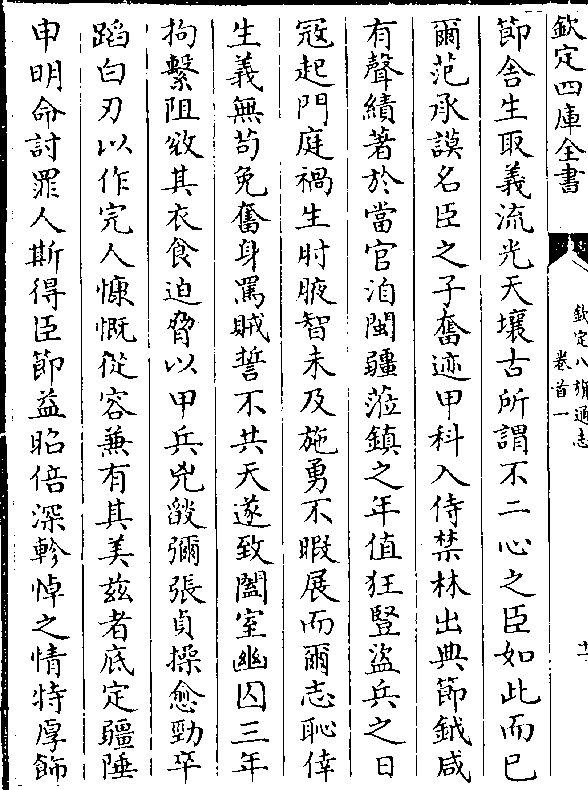 欽定四庫全書
欽定八旗通志
卷首一
十一
節舍生取義流光天壤古所謂不二心之臣如此而已
爾范承謨名臣之子奮迹甲科入侍禁林出典節鉞咸
有聲績著於當官洎閩疆蒞鎮之年值狂豎盜兵之日
冦起門庭禍生肘腋智未及施勇不暇展而爾志恥倖
生義無苟免奮身罵賊誓不共天遂致闔室幽囚三年
拘繫阻絶其衣食迫脅以甲兵兇燄彌張貞操愈勁卒
蹈白刃以作完人慷慨從容兼有其美兹者底定疆陲
申明命討罪人斯得臣節益昭倍深軫悼之情特厚飾